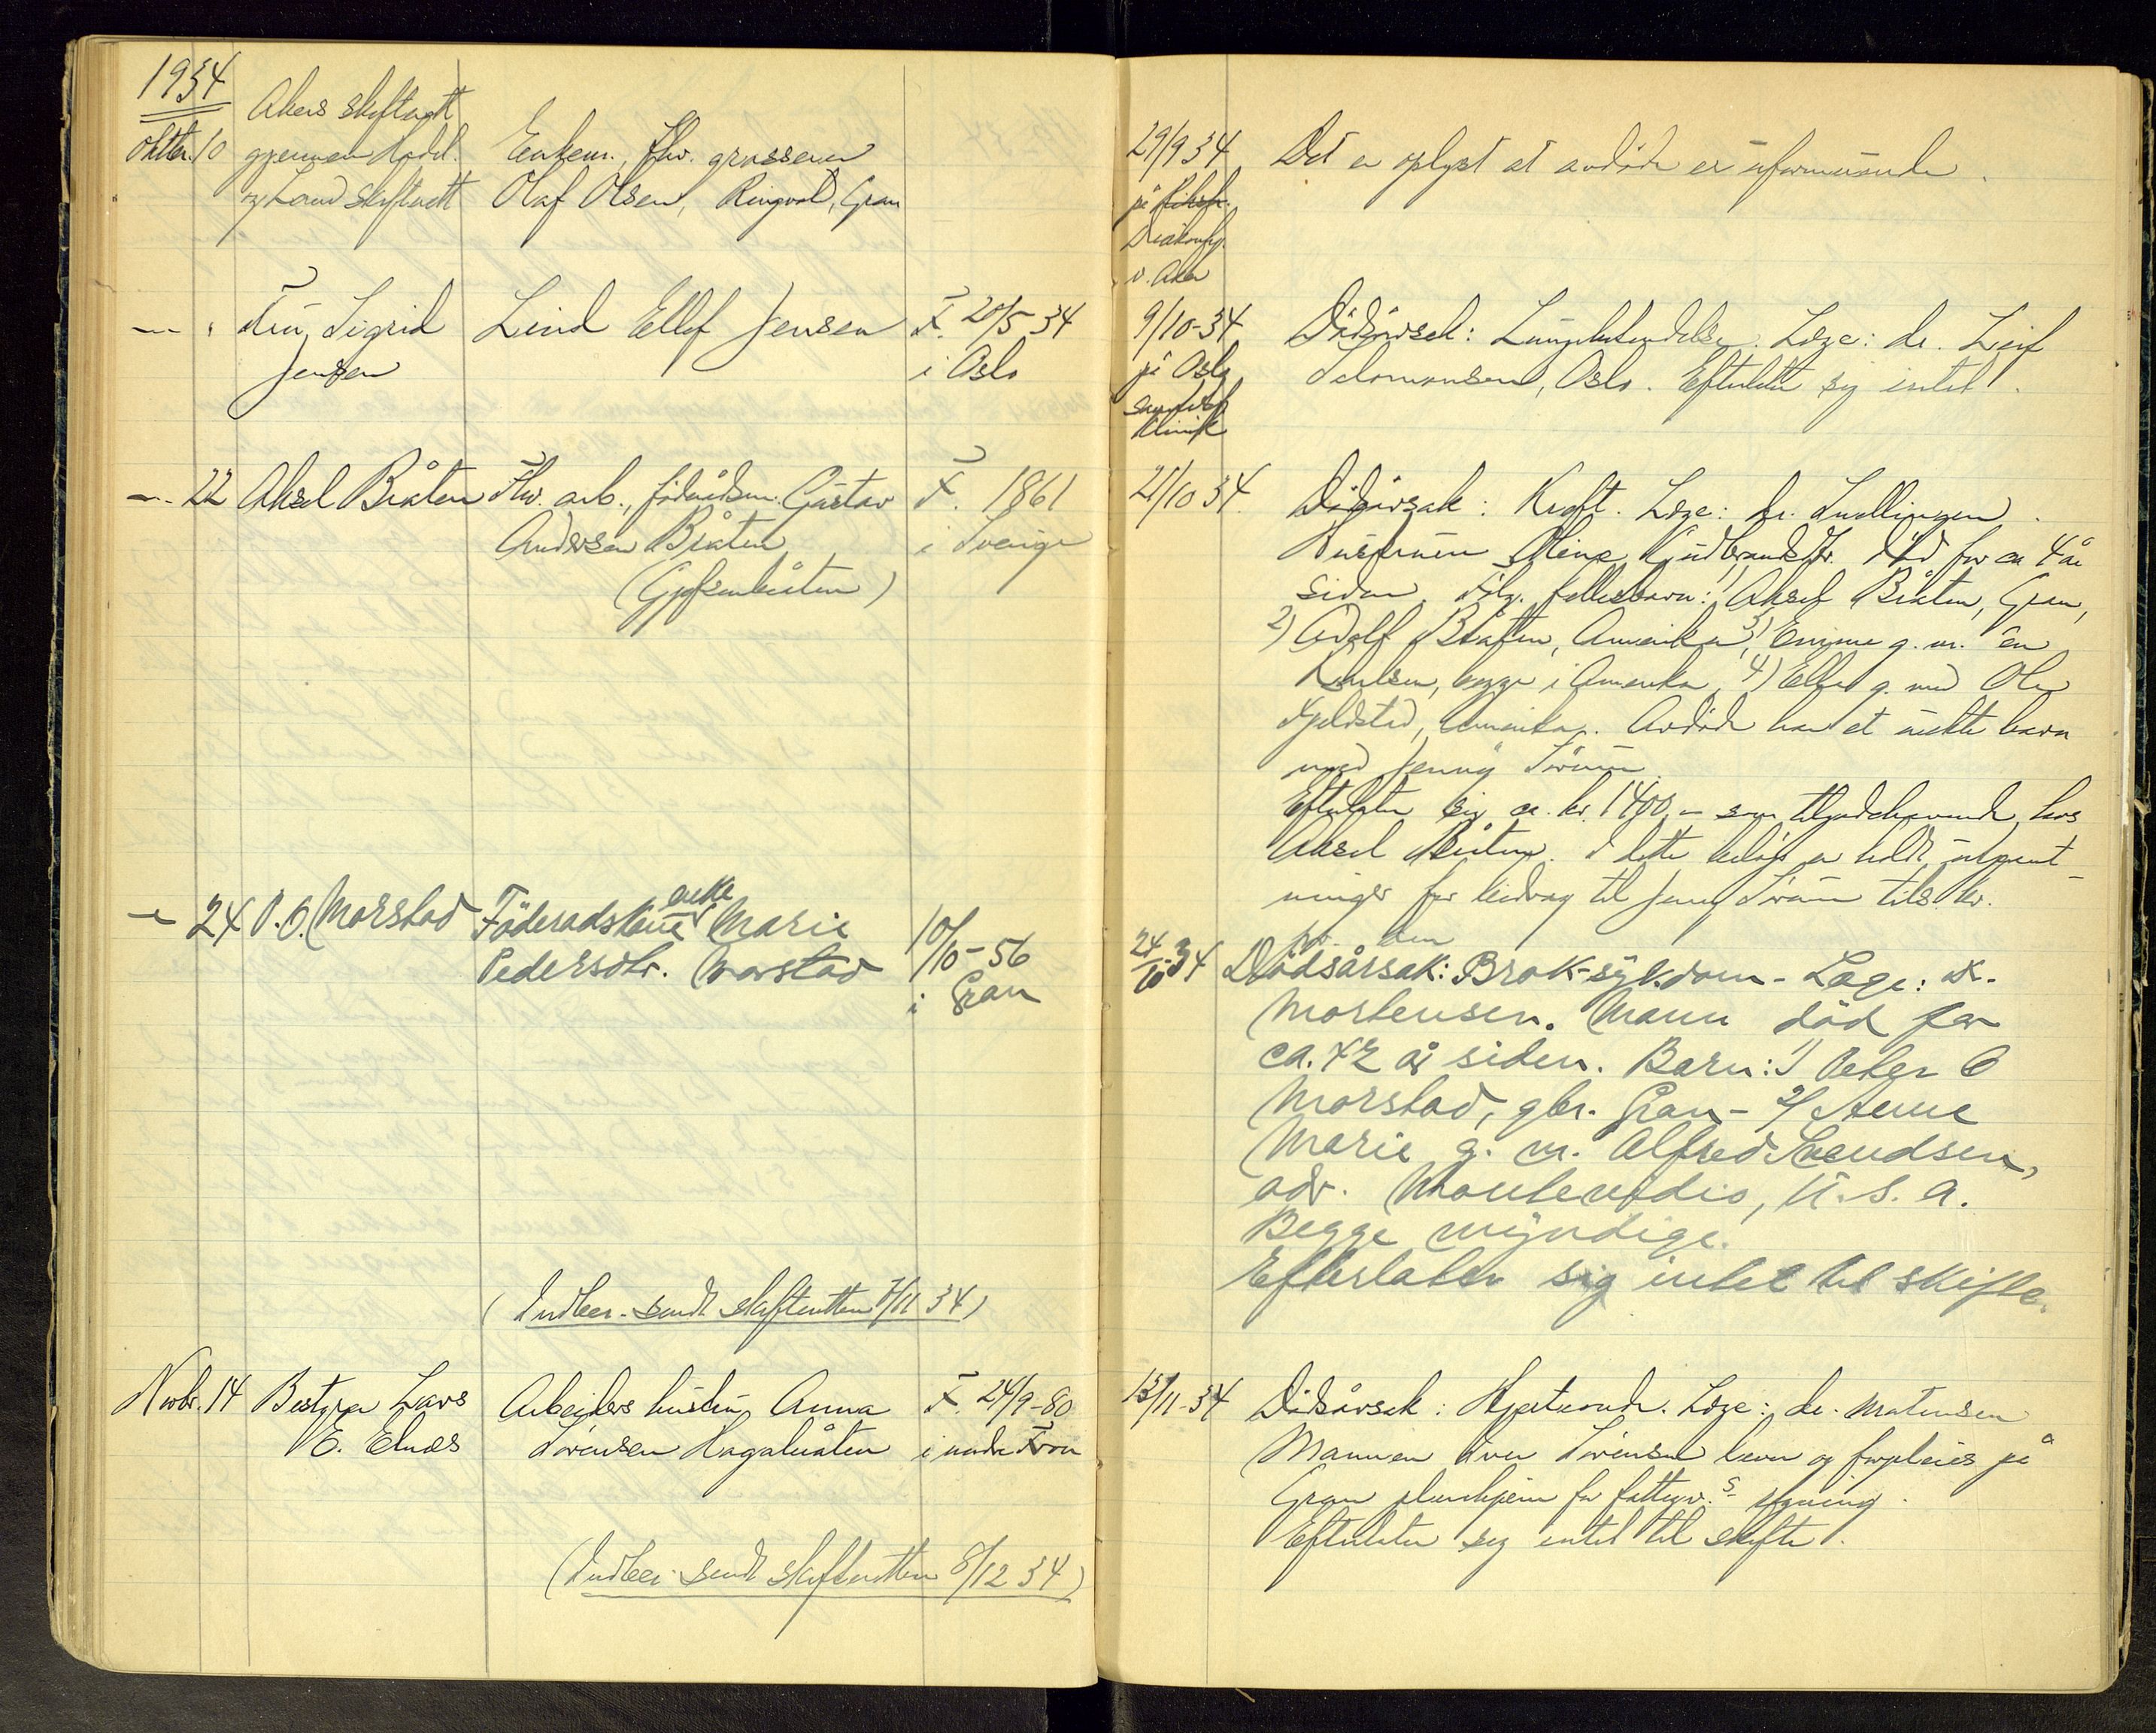 1934
Akers skifterett
Oktbr. 10 gjennem Hadel.
og Land skifterett
Enkem., fhv. grosserer
Olaf Olsen, Ringvol, Gran
29/9 34
på
Diakonhj.
v. Aker
Det er oplyst at avdöde er uformuende.
— " Fru Sigrid
Jensen
Lind Ellef Jensen
F. 20/5 34
i Oslo
9/10-34
på Oslo
Klinik
Dödsårsak: Lungebetendelse. Læge: dr. Leif
Salomonsen, Oslo. Efterlater sig intet.
— 22 Aksel Bråten
Fhv. arb., föderådsm. Gustav
Andersen Bråten
F. 1861
i Sverige
21/10 34.
Dödsårsak: Kreft. Læge: dr.
Hustruen Oline Gudbrandsdtr. död for ca 4 år
siden. Følg. fellesbarn: 1) Aksel Bråten, Gran,
2) Adolf Bråten, Amerika, 3) Emma g. m. en
Karlsen, begge i Amerika, 4) Ella g. med Ole
Kjeldstad, Amerika. Avdöde har et uekte barn
med Jenny
Efterlater sig ca. kr. 1400,- som tilgodehavende hos
Aksel Bråten. I dette beløp er holdt utgent-
ninger for bidrag til Jenny tils. kr.
pr. den
— 24 P. O. Morstad
Föderadskone enke Marie
Pedersdtr. Morstad
10/10-56
i Gran
24/10-34
Dödsårsak: Brok-sykdom - Læge: dr.
Mortensen. Mann död for
ca. 42 år siden. Barn: 1) Peter O
Morstad, gbr. Gran - 2/ Anne
Marie g. m. Alfred Svendsen,
adr. Montevidio, U. S. A.
Begge myndige.
Efterlater sig intet til skifte.
(Indber. sendt skifteretten 7/11 34)
Novbr. 14 Bestyrer Lars
E. Elnæs
Arbeiders hustru Anna
Sörensen Hagabråten
F. 24/9-80
i nordre Fron
13/11-34
Dödsårsak: Hjerteonde. Læge: dr. Mortensen
Mannen Iver Sörensen lever og forpleies på
Gran pleiehjem for fattigv.s regning.
Efterlater sig intet til skifte.
(Indber. sendt skifteretten 8/12 34)